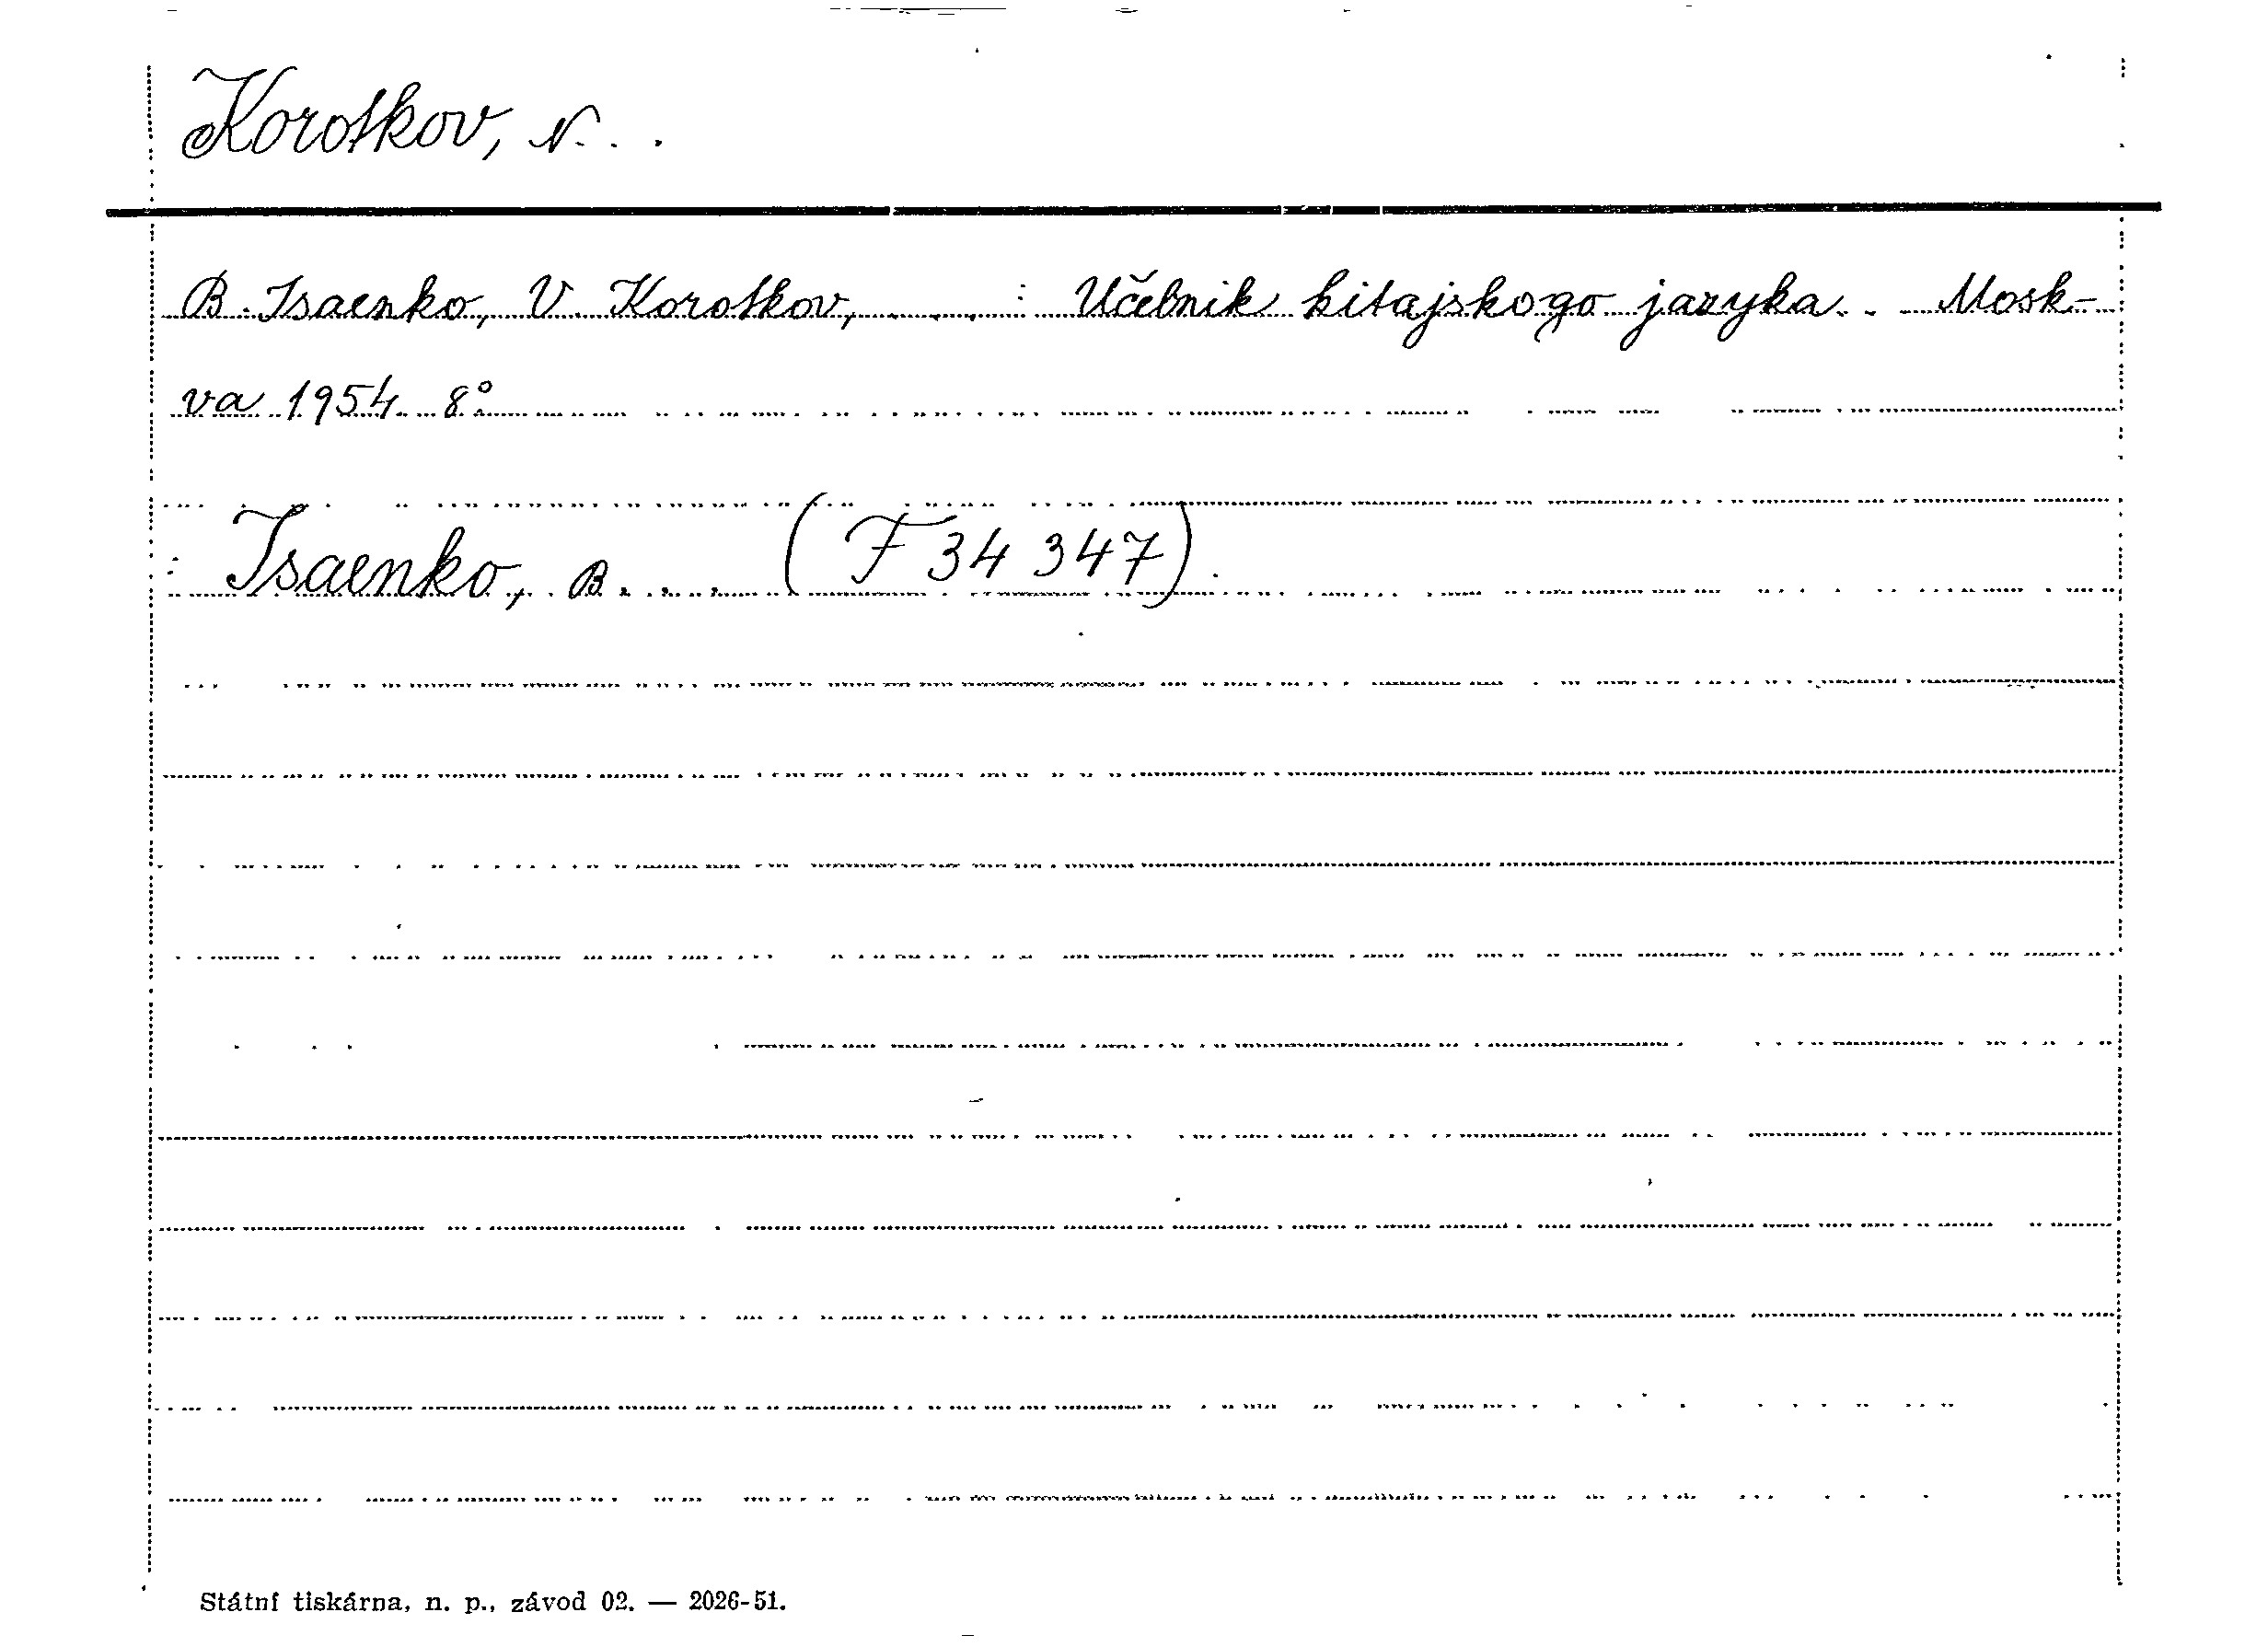 Korotkov, N...
B. Isaenko, V. Korotkov, ... : Učebnik kitajskogo jazyka. . Mosk-
va 1954. 8°.
: Isaenko, B.... (F 34 347).
Státní tiskárna, n. p., závod 02. — 2026-51.